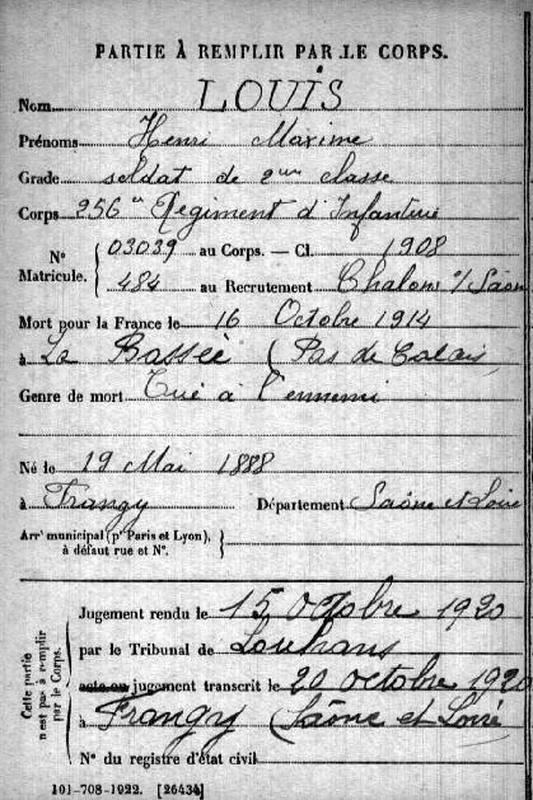 PARTIE À REMPLIR PAR LE CORPS.
Nom LOUIS
Prénoms Henri Maxime
Grade soldat de 2eme classe
Corps 256e Régiment d'Infanterie
Nº Matricule. 03039 au Corps. — Cl. 1908
484 au Recrutement Chalon s/ Saône
Mort pour la France le 16 Octobre 1914
à La Bassée (Pas de Calais)
Genre de mort Tué à l'ennemi
Né le 19 Mai 1888
à Frangy Département Saône et Loire
Arrt municipal (pr Paris et Lyon),
à défaut rue et Nº.
Cette partie
n'est pas à remplir
par le Corps.
Jugement rendu le 15 Octobre 1920
par le Tribunal de Louhans
acte ou jugement transcrit le 20 octobre 1920
à Frangy (Saône et Loire
Nº du registre d'état civil
101-708-1922. [26434]